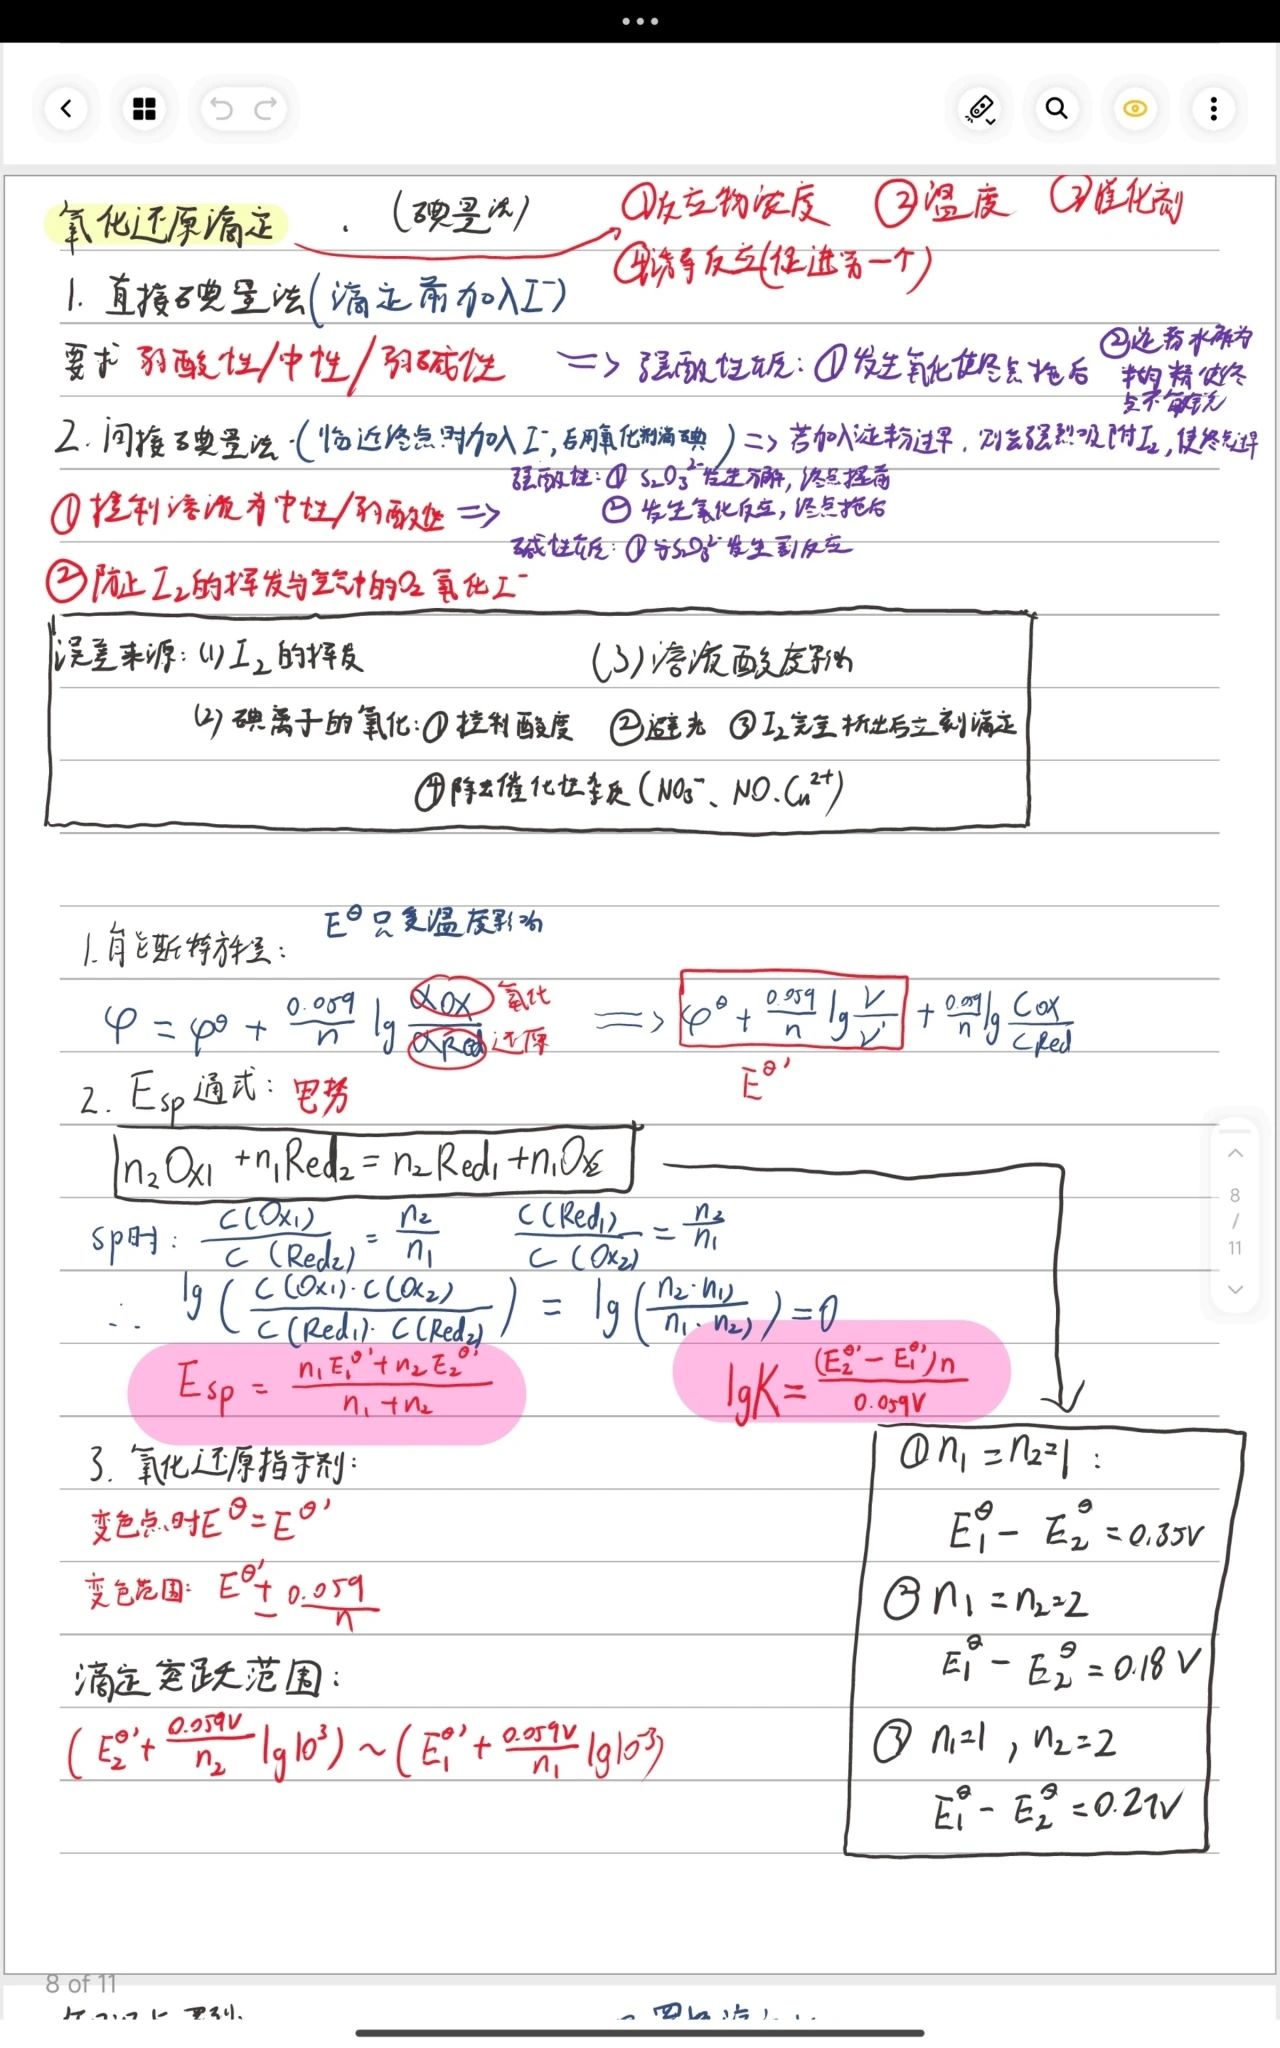 氧化还原滴定 (碘量法) ①反应物浓度 ②温度 ③催化剂
④诱导反应(促进另一个)
1. 直接碘量法(滴定前加入I⁻)
要求 弱酸性/中性/弱碱性 => 强酸性在后: ①发生氧化使终点拖后 ②淀粉水解为
糊精使终
点不敏锐
2. 间接碘量法·(临近终点时加入I⁻,后用氧化剂滴碘) => 若加入淀粉过早, 则会强烈吸附I₂, 使终点过早
强酸性: ① S₂O₃²⁻发生分解, 终点提前
① 控制溶液为中性/弱酸性 => ② 发生氧化反应, 终点拖后
碱性在后: ① 与S₂O₃²⁻发生副反应
② 防止I₂的挥发与空气中的O₂氧化I⁻
误差来源: (1) I₂的挥发 (3) 溶液酸度影响
(2) 碘离子的氧化: ①控制酸度 ②避光 ③I₂完全析出后立刻滴定
④除去催化性杂质 (NO₃⁻、NO、Cu²⁺)
E^θ只受温度影响
1. 能斯特方程:
φ = φ^θ + 0.059/n lg αOx/αRed 氧化 还原 => φ^θ + 0.059/n lg γ/γ' + 0.059/n lg COx/CRed
E^θ'
2. Esp通式: 电势
n₂Ox₁ + n₁Red₂ = n₂Red₁ + n₁Ox₂
sp时: C(Ox₁)/C(Red₂) = n₂/n₁ C(Red₁)/C(Ox₂) = n₂/n₁
∴ lg (C(Ox₁)·C(Ox₂)/C(Red₁)·C(Red₂)) = lg (n₂·n₁/n₁·n₂) = 0
Esp = n₁E₁^θ' + n₂E₂^θ'/n₁+n₂ lgK = (E₂^θ' - E₁^θ')n/0.059V
3. 氧化还原指示剂: ① n₁ = n₂ = 1 :
变色点时E^θ = E^θ' E₁^θ - E₂^θ = 0.35V
变色范围: E^θ' ± 0.059/n ② n₁ = n₂ = 2
滴定突跃范围: E₁^θ - E₂^θ = 0.18V
(E₂^θ' + 0.059V/n₂ lg10³) ~ (E₁^θ' + 0.059V/n₁ lg10⁻³) ③ n₁=1, n₂=2
E₁^θ - E₂^θ = 0.27V
8
/
11
8 of 11